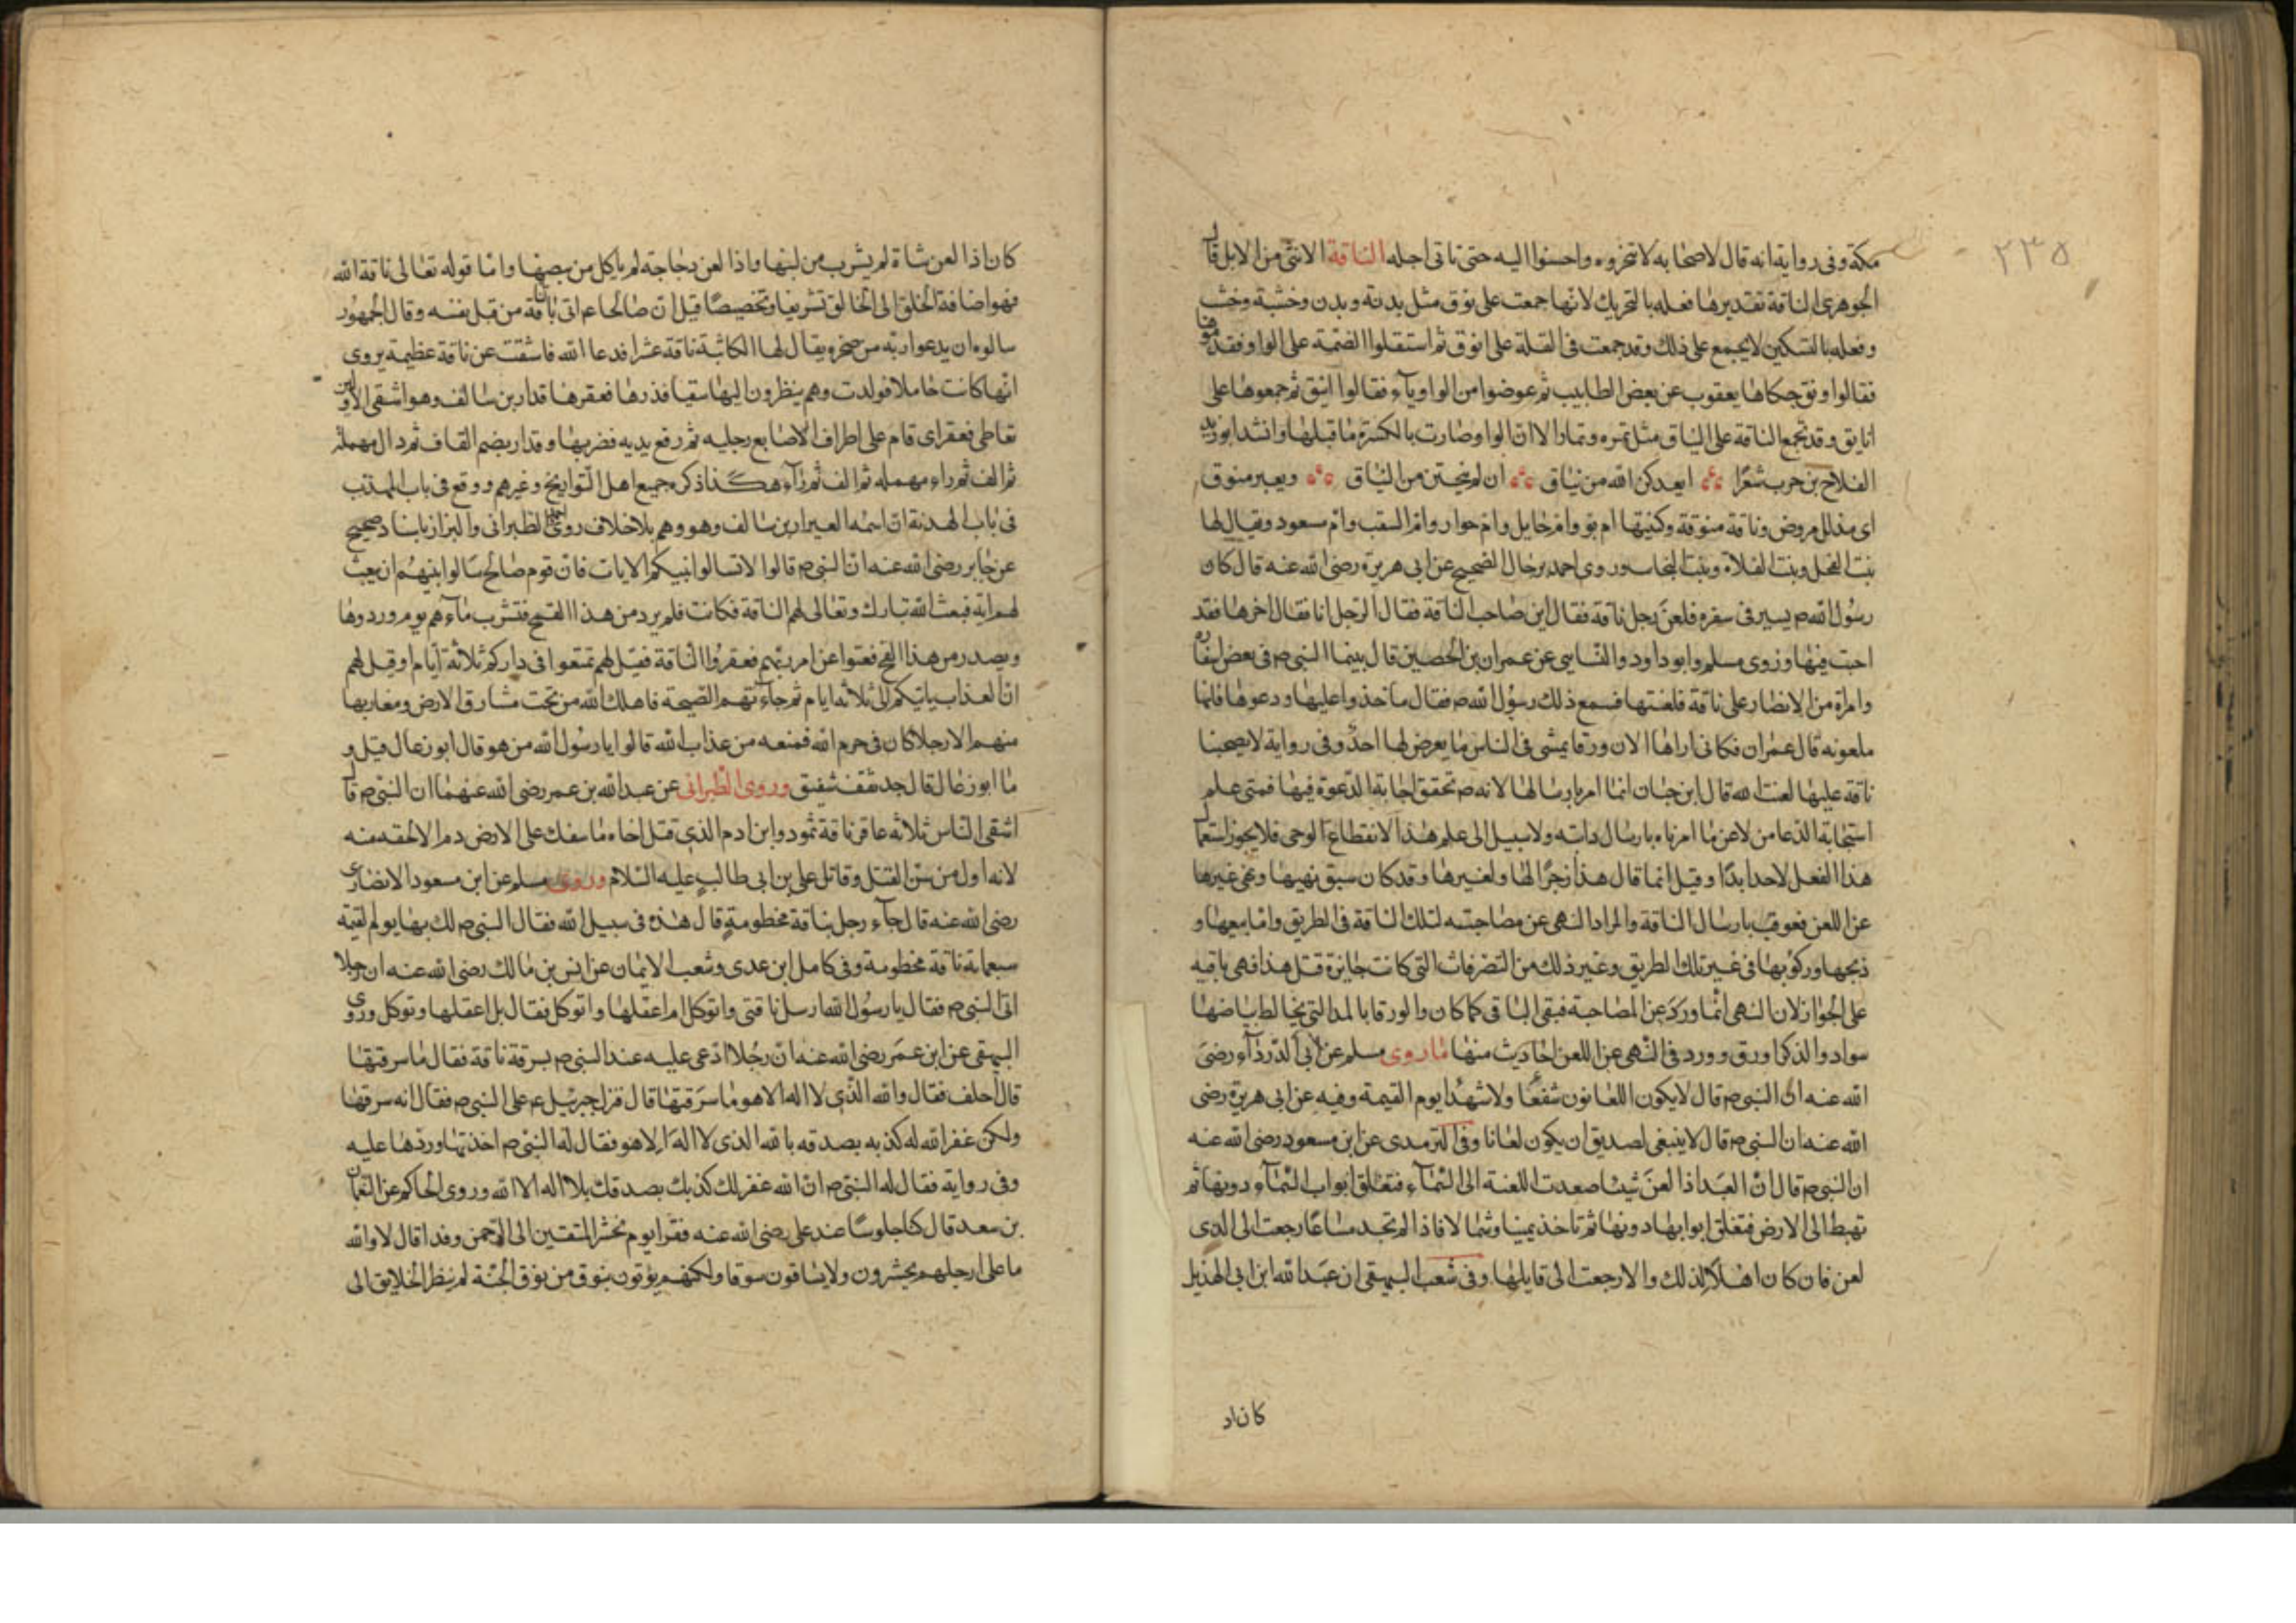 ٢٣٥
مكة وفى رواية انه قال لاصحابه لا تنحروه واحسنوا اليه حتى تاتى اجله الناقة الانثى من الابل قال
الجوهرى الناقة تقديرها فعله بالتحريك لانها جمعت على نوق مثل بدنة وبدن وخشبة وخشب
وفعله بالتسكين لا يجمع على ذلك وقد جمعت فى القلة على انوق ثم استقلوا الضمة على الواو فقدموها
فقالوا ونق حكاها يعقوب عن بعض الطايب ثم عوضوا من الواو ياء فقالوا انيق ثم جمعوها على
انايق وقد تجمع الناقة على النياق مثل تمره وتمار الا ان الواو صارت بالكسرة ما قبلها وانشد ابو زيد
الفلاح بن حرب شعرًا ابعدكن الله من نياق ان لم ينجين من النياق وبعير منوق
اى مذلل مروض وناقة منوقة وكنيتها ام بو وام حايل وام حوار وام السقب وام مسعود ويقال لها
بنت الفحل وبنت الفلاة وبنت النجاسو روى احمد برجال الصحيح عن ابى هريرة رضى الله عنه قال كان
رسول الله ص يسير فى سفره فلعن رجل ناقة فقال اين صاحب الناقة فقال الرجل انا فقال اخرها فقد
اجبت فيها وروى مسلم وابو داود والنسايى عن عمران بن الحصين قال بينما النبى ص فى بعض اسفاره
وامراة من الانصار على ناقة فلعنتها فسمع ذلك رسول الله ص فقال ما خذوا عليها ودعوها فانها
ملعونه قال عمران فكانى اراها الان ورقا يمشى فى الناس ما يعرض لها احد وفى رواية لا يصحبنا
ناقة عليها لعنت الله قال ابن حبان انما امر بارسالها لانه ص تحقق اجابة الدعوة فيها فمتى علم
استجابة الدعا من لاعن ما امرناه بارسال دابته ولا سبيل الى علم هذا لانقطاع الوحى فلا يجوز استعمال
هذا الفعل لاحد ابدًا وقيل انما قال هذا زجرًا لها ولغيرها وقد كان سبق نهيها ونهى غيرها
عن اللعن فعوقب بارسال الناقة والمراد النهى عن مصاحبته لتلك الناقة فى الطريق واما بيعها و
ذبحها وركوبها فى غير تلك الطريق وغير ذلك من التصرفات التى كانت جايزة قبل هذا فهى باقيه
على الجواز لان النهى انما ورد عن المصاحبة فبقى الباقى كما كان والورقا بالمد التى يخالط بياضها
سواد والذكر اورق وورد فى النهى عن اللعن احاديث منها ما روى مسلم عن ابى الدرداء رضى
الله عنه ان النبى ص قال لا يكون اللعانون شفعا ولا شهدا يوم القيمة وفيه عن ابى هريرة رضى
الله عنه ان النبى ص قال لا ينبغى لصديق ان يكون لعانا وفى الترمدى عن ابن مسعود رضى الله عنه
ان النبى ص قال ان العبد اذا لعن شيئا صعدت اللعنة الى السماء فتغلق ابواب السماء دونها ثم
تهبط الى الارض فتغلق ابوابها دونها ثم تاخذ يمينا وشمالا فاذا لم تجد مساغا رجعت الى الذى
لعن فان كان اهلا لذلك والا رجعت الى قايلها وفى شعب البيهقى ان عبد الله ابن ابى الهذيل
كان اد
كان اذا لعن شاة لم يشرب من لبنها واذا لعن دجاجة لم ياكل من بيضها واما قوله تعالى ناقة الله
فهو اضافة الخلق الى الخالق تشريفا وتخصيصًا قيل ان صالحا عم اتى بالناقة من قبل نفسه وقال الجمهور
سالوه ان يدعو ربه من صخره يقال لها الكاثبة ناقة عشرا فدعا الله فانشقت عن ناقة عظيمة يروى
انها كانت حاملا فولدت وهم ينظرون اليها سقيا فذرها فعقرها قدار بن سالف وهو اشقى الاولين
تعاطى فعقر اى قام على اطراف الاصابع رجليه ثم رفع يديه فضربها وقدار بضم القاف ثم دال مهملة
ثم الف ثم راء مهمله ثم الف ثم راء هكذا ذكره جميع اهل التواريخ وغيرهم ووقع فى باب المهذب
فى باب الهدنة ان اسمه العيرار بن سالف وهو وهم بلا خلاف روى الطبرانى والبزاز باسناد صحيح
عن جابر رضى الله عنه ان النبى ص قالوا لا تسالوا نبيكم الايات فان قوم صالح سالوا نبيهم ان يبعث
لهم اية فبعث الله تبارك وتعالى لهم الناقة فكانت فلم يرد من هذا الفتح فتشرب ماءهم يوم وردوها
ويصدر من هذا الفج فعتوا عن امر ربهم فعقروا الناقة فقيل لهم تمتعوا فى داركم ثلاثة ايام او قيل لهم
ان العذاب ياتيكم الى ثلاثه ايام ثم جاءتهم الصيحة فاهلك الله من تحت مشارق الارض ومغاربها
منهم الا رجلا كان فى حرم الله فمنعه من عذاب الله قالوا يا رسول الله من هو قال ابو زعال قيل و
ما ابو زعال قال جد ثقف شفيق وروى الطبرانى عن عبد الله بن عمر رضى الله عنهما ان النبى ص قال
اشقى الناس ثلاثه عاقر ناقة ثمود وابن ادم الذى قتل اخاه ما سفك على الارض دم الا لحقه منه
لانه اول من سن القتل وقاتل على بن ابى طالب عليه السلام وروى مسلم عن ابن مسعود الانصارى
رضى الله عنه قال جاء رجل بناقة مخطومة قال هذه فى سبيل الله فقال النبى ص لك بها يوم القيمه
سبعماية ناقة مخطومة وفى كامل ابن عدى وشعب الايمان عن انس بن مالك رضى الله عنه ان رجلا
اتى النبى ص فقال يا رسول الله ارسل ناقتى واتوكل ام اعقلها واتوكل فقال بل اعقلها وتوكل وروى
البيهقى عن ابن عمر رضى الله عنه ان رجلا ادعى عليه عند النبى ص بسرقة ناقة فقال ما سرقتها
قال احلف فقال والله الذى لا اله الا هو ما سرقتها قال فنزل جبرئيل عم على النبى ص فقال انه سرقها
ولكن غفر الله له كذبه بصدقه بالله الذى لا اله الا هو فقال له النبى ص اخذتها وردها عليه
وفى رواية فقال له النبى ص ان الله غفر لك كذبك بصدقك بلا اله الا الله وروى الحاكم عن النعمان
بن سعد قال كنا جلوسًا عند على رضى الله عنه فقرا يوم نحشر المتقين الى الرحمن وفدا قال لا والله
ما على ارجلهم يحشرون ولا يساقون سوقا ولكنهم يؤتون بنوق من نوق الجنة لم ينظر الخلايق الى